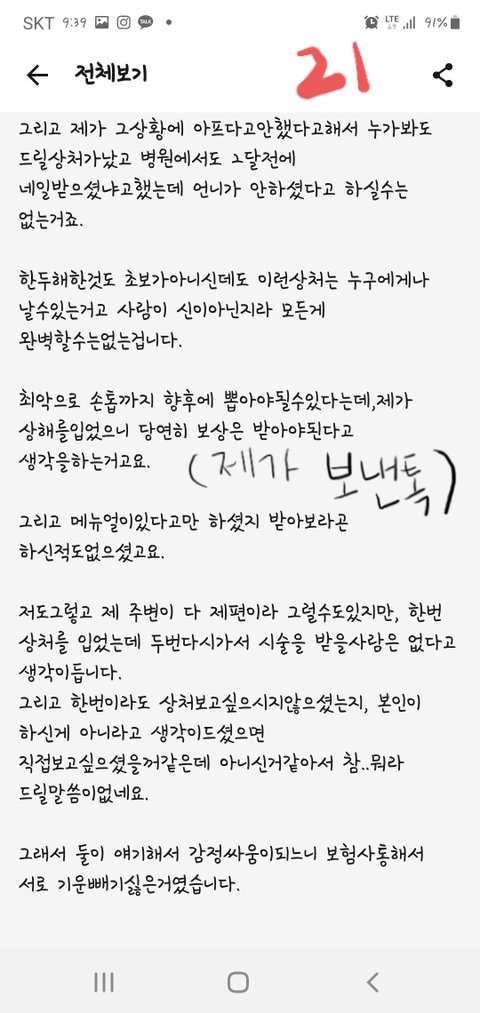 SKT 9:39 TALK LTE 91%
전체보기
21
그리고 제가 그상황에 아프다고안했다고해서 누가봐도
드릴상처가났고 병원에서도 2달전에
네일받으셨냐고했는데 언니가 안하셨다고 하실수는
없는거죠.
한두해한것도 초보가아니신데도 이런상처는 누구에게나
날수있는거고 사람이 신이아닌지라 모든게
완벽할수는없는겁니다.
최악으로 손톱까지 향후에 뽑아야될수있다는데,제가
상해를입었으니 당연히 보상은 받아야된다고
생각을하는거고요.
(제가 보낸톡)
그리고 메뉴얼이있다고만 하셨지 받아보라곤
하신적도없으셨고요.
저도그렇고 제 주변이 다 제편이라 그럴수도있지만, 한번
상처를 입었는데 두번다시가서 시술을 받을사람은 없다고
생각이듭니다.
그리고 한번이라도 상처보고싶으시지않으셨는지, 본인이
하신게 아니라고 생각이드셨으면
직접보고싶으셨을꺼같은데 아니신거같아서 참..뭐라
드릴말씀이없네요.
그래서 둘이 얘기해서 감정싸움이되느니 보험사통해서
서로 기운빼기싫은거였습니다.